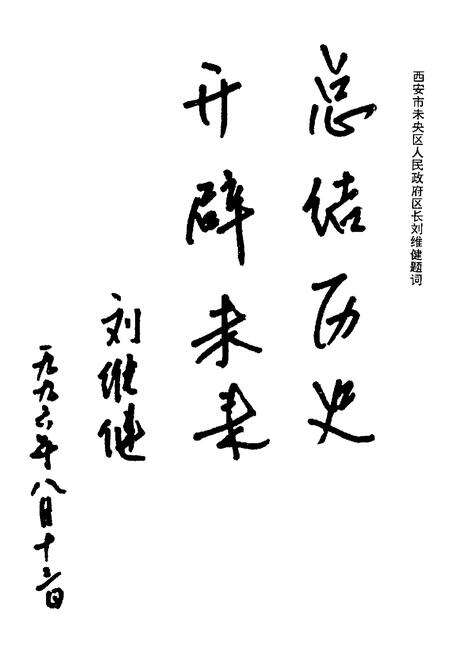 西安市未央区人民政府区长刘维健题词
总结历史
开辟未来
刘维健
一九九六年八月十二日